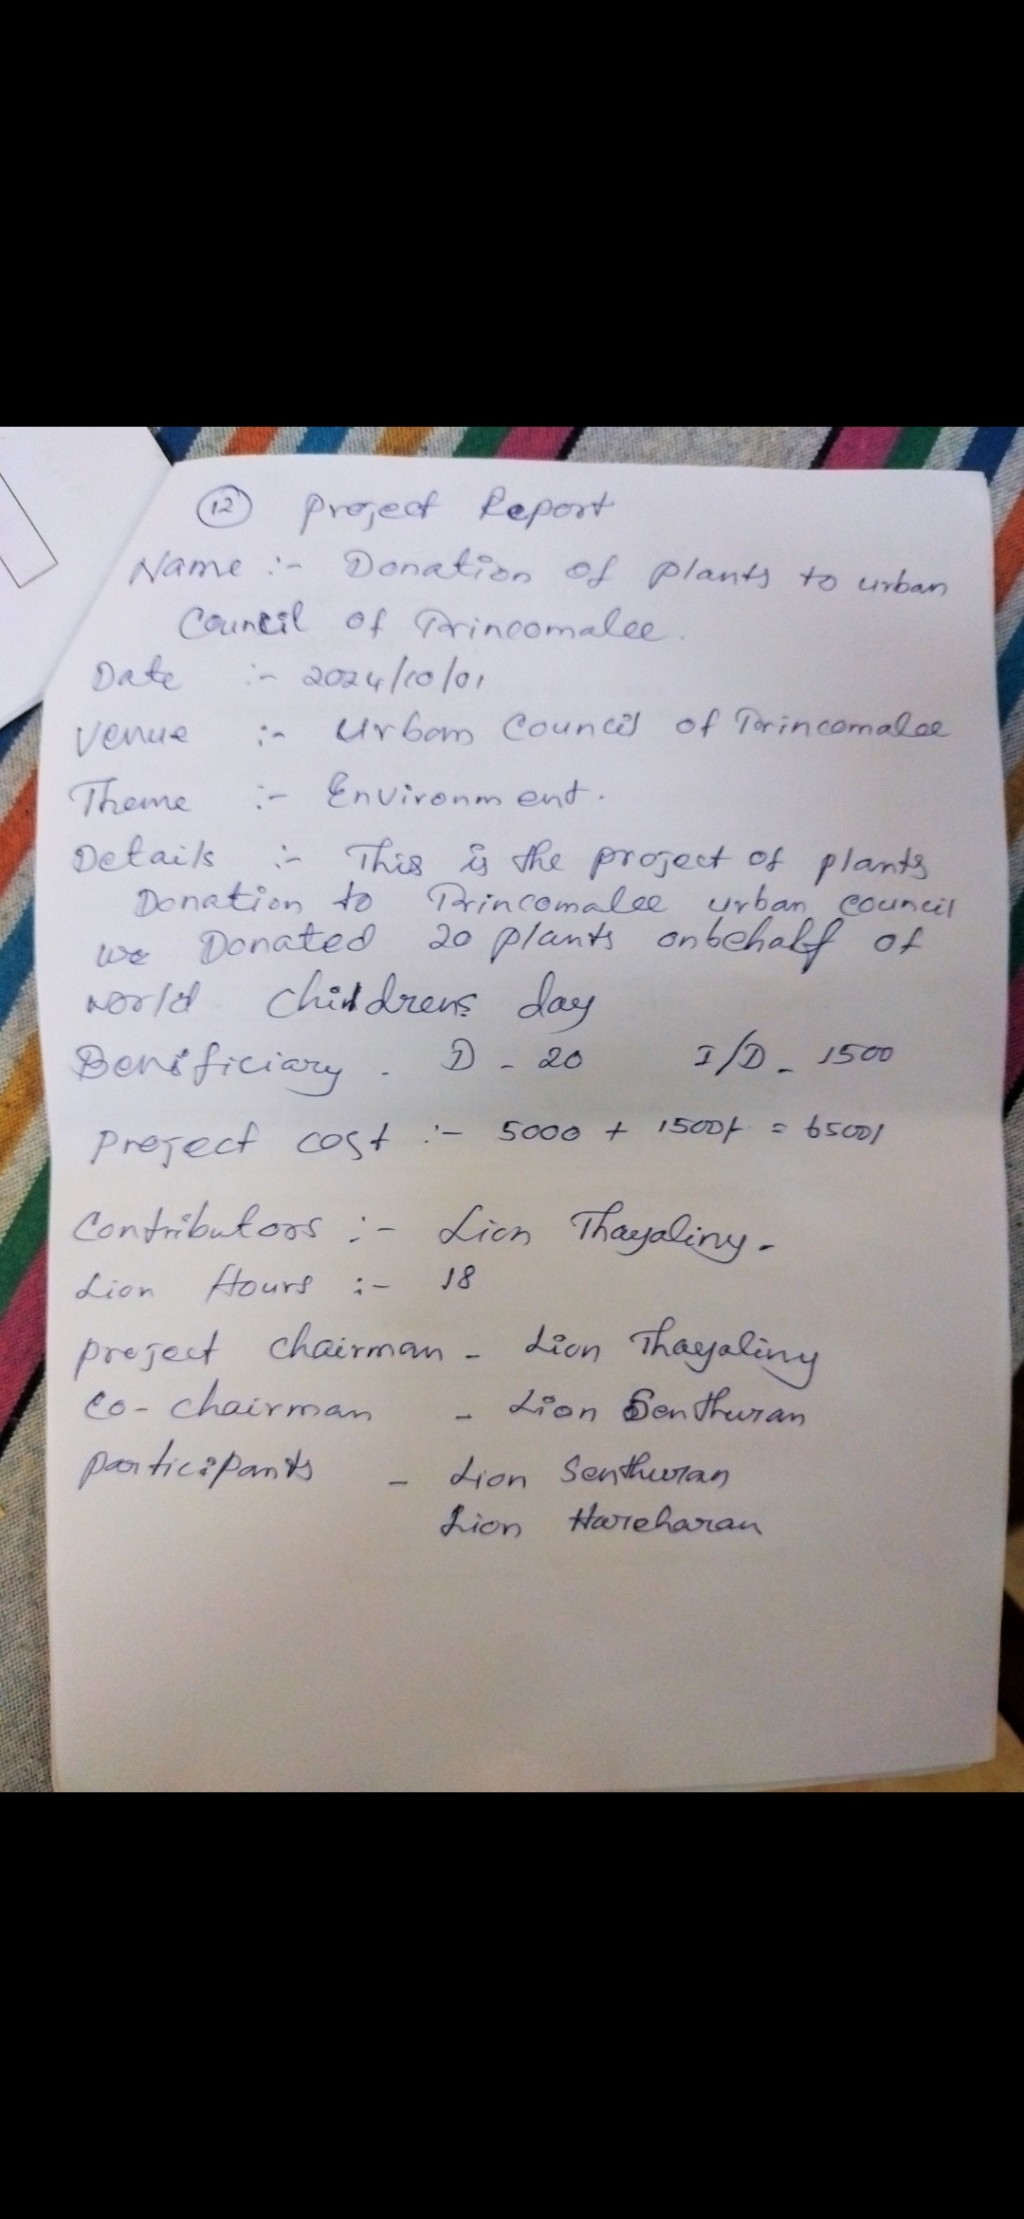 12 Project Report
Name :- Donation of plants to urban
Council of Trincomalee.
Date :- 2024/10/01
Venue :- Urban Council of Trincomalee
Theme :- Environment.
Details :- This is the project of plants
Donation to Trincomalee urban council
we Donated 20 plants onbehalf of
world childrens day
Benificiary - D - 20 I/D - 1500
Project cost :- 5000 + 1500/- = 6500/
Contributors :- Lion Thayaliny.
Lion Hours :- 18
project chairman - Lion Thayaliny
Co-chairman - Lion Senthuran
participants - Lion Senthuran
Lion Hareharan